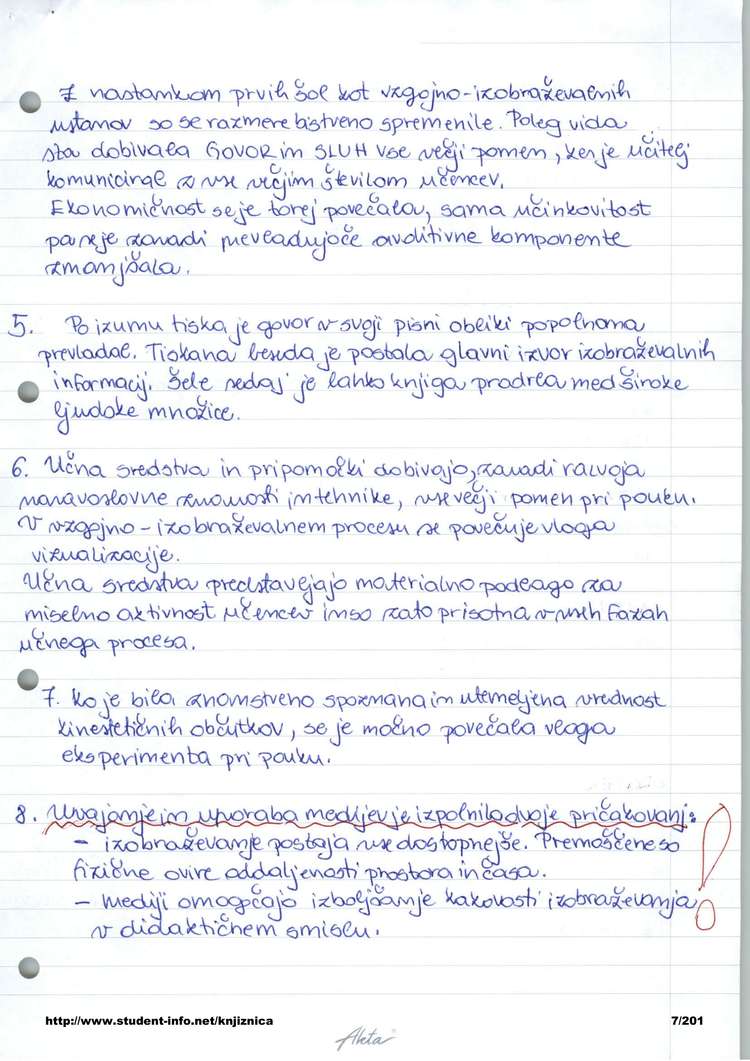 Z nastankom prvih šol kot vzgojno-izobraževalnih
ustanov so se razmere bistveno spremenile. Poleg vida
sta dobivala GOVOR in SLUH vse večji pomen, ker je učitelj
komuniciral z vse večjim številom učencev.
Ekonomičnost se je torej povečala, sama učinkovitost
pa se je zaradi prevladujoče avditivne komponente
zmanjšala.
5. Po izumu tiska je govor v svoji pisni obliki popolnoma
prevladal. Tiskana beseda je postala glavni izvor izobraževalnih
informacij. Šele sedaj je lahko knjiga prodrla med široke
ljudske množice.
6. Učna sredstva in pripomočki dobivajo, zaradi razvoja
naravoslovne znanosti in tehnike, vse večji pomen pri pouku.
V vzgojno-izobraževalnem procesu se povečuje vloga
vizualizacije.
Učna sredstva predstavljajo materialno podlago za
miselno aktivnost učencev in so zato prisotna v vseh fazah
učnega procesa.
7. Ko je bila znanstveno spoznana in utemeljena vrednost
kinestetičnih občutkov, se je močno povečala vloga
eksperimenta pri pouku.
8. Uvajanje in uporaba medijev je izpolnila dvoje pričakovanj:
- izobraževanje postaja vse dostopnejše. Premoščene so
fizične ovire oddaljenosti prostora in časa.
- Mediji omogočajo izboljšanje kakovosti izobraževanja
v didaktičnem smislu.
!
http://www.student-info.net/knjiznica 7/201
Akta